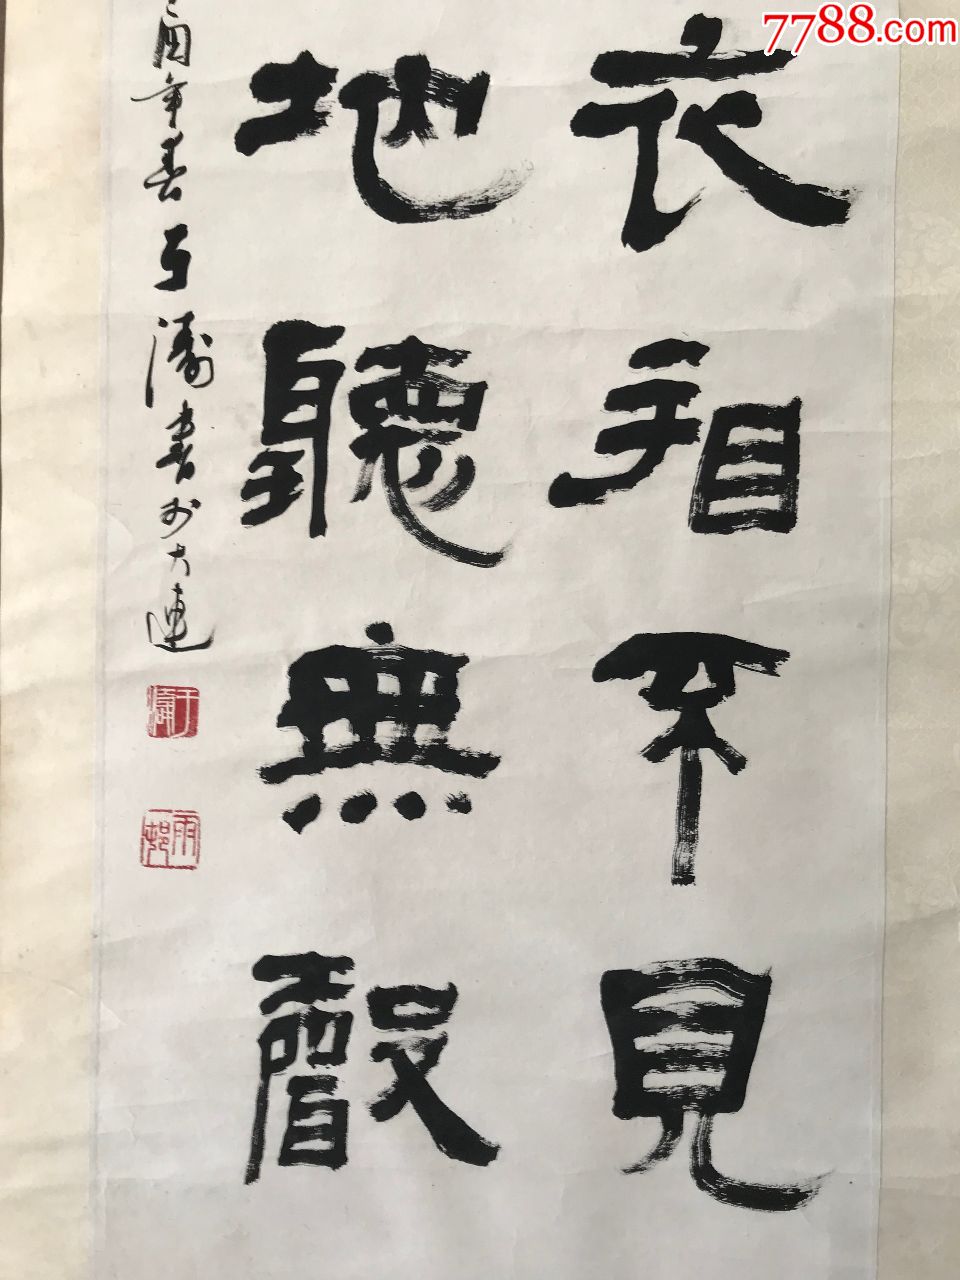 7788.com
衣看不見
地聽無聲
酉年春于濤書於大連
于濤
雨邨